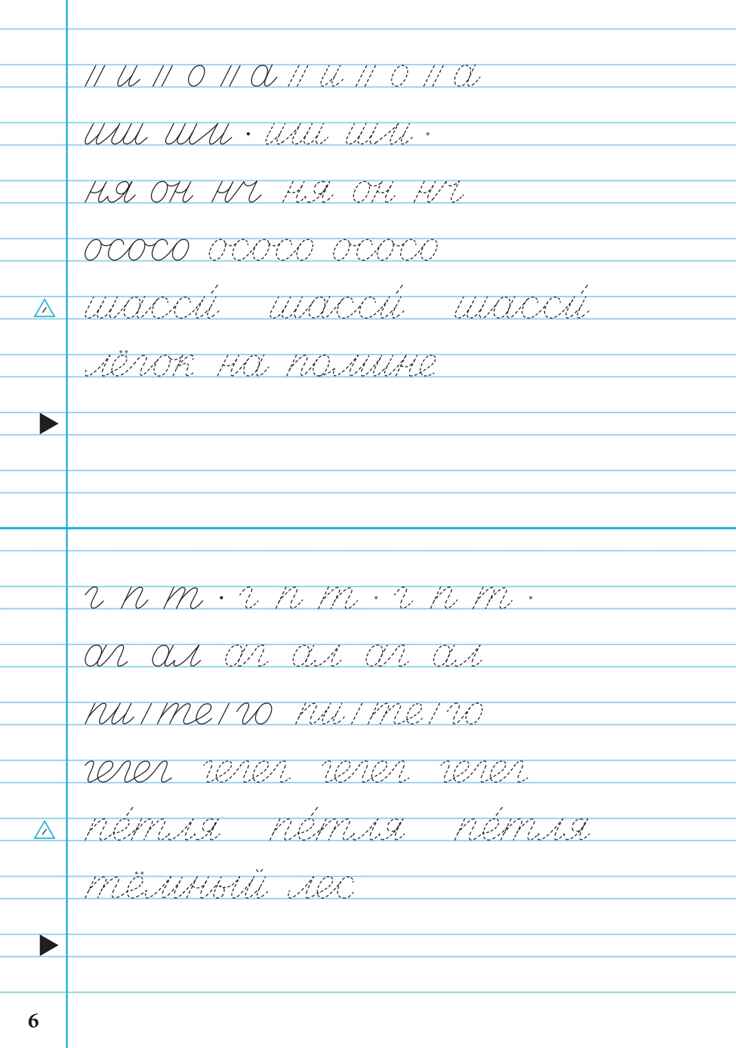 // и // о // а // и // о // а
иш ши · иш ши ·
ня он нч ня он нч
ососо ососо ососо
шасси́ шасси́ шасси́
лёгок на помине
г п т · г п т · г п т ·
аг ал аг ал аг ал
пи / те / го пи / те / го
гегег гегег гегег гегег
пе́тля пе́тля пе́тля
тёмный лес
6